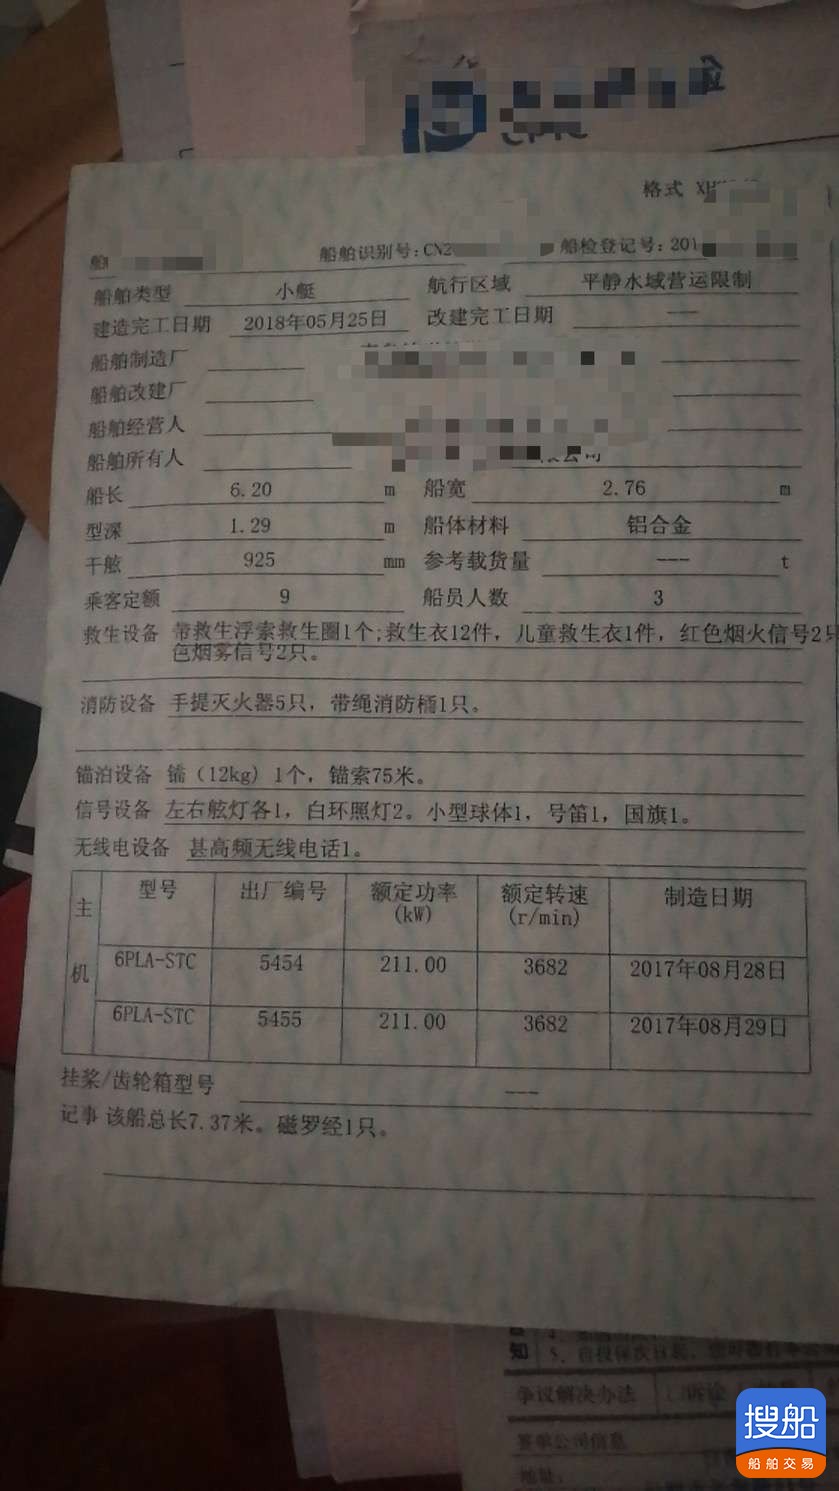 格式
船舶识别号:CN2 船检登记号:201
船舶类型 小艇 航行区域 平静水域营运限制
建造完工日期 2018年05月25日 改建完工日期 ---
船舶制造厂
船舶改建厂
船舶经营人
船舶所有人 公司
船长 6.20 m 船宽 2.76 m
型深 1.29 m 船体材料 铝合金
干舷 925 mm 参考载货量 --- t
乘客定额 9 船员人数 3
救生设备 带救生浮索救生圈1个;救生衣12件，儿童救生衣1件，红色烟火信号2只
色烟雾信号2只。
消防设备 手提灭火器5只，带绳消防桶1只。
锚泊设备 锚（12kg）1个，锚索75米。
信号设备 左右舷灯各1，白环照灯2。小型球体1，号笛1，国旗1。
无线电设备 甚高频无线电话1。
主机 型号 出厂编号 额定功率(kW) 额定转速(r/min) 制造日期
6PLA-STC 5454 211.00 3682 2017年08月28日
6PLA-STC 5455 211.00 3682 2017年08月29日
挂桨/齿轮箱型号 ---
记事 该船总长7.37米。磁罗经1只。
知
争议解决办法 诉讼
签单公司信息
地址：
搜船
船舶交易